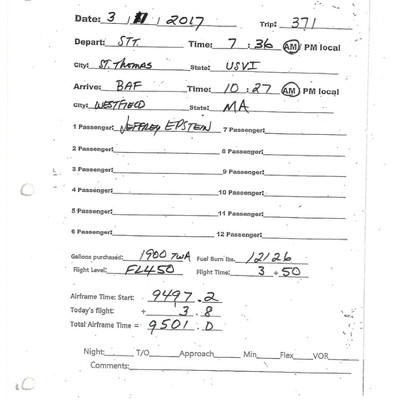 Date: 3 / / 2017 Trip: 371
Depart: STT Time: 7 : 36 AM/ PM local
City: ST. THOMAS State: USVI
Arrive: BAF Time: 10 : 27 AM/ PM local
City: WESTFIELD State: MA
1 Passenger: JEFFREY EPSTEIN 7 Passenger:
2 Passenger: 8 Passenger:
3 Passenger: 9 Passenger:
4 Passenger: 10 Passenger:
5 Passenger: 11 Passenger:
6 Passenger: 12 Passenger:
Gallons purchased: 1900 TWA Fuel Burn lbs. 12126
Flight Level: FL450 Flight Time: 3 + 50
Airframe Time: Start: 9497.2
Today's flight: + 3.8
Total Airframe Time = 9501.0
Night: T/O Approach Min Flex VOR
Comments: